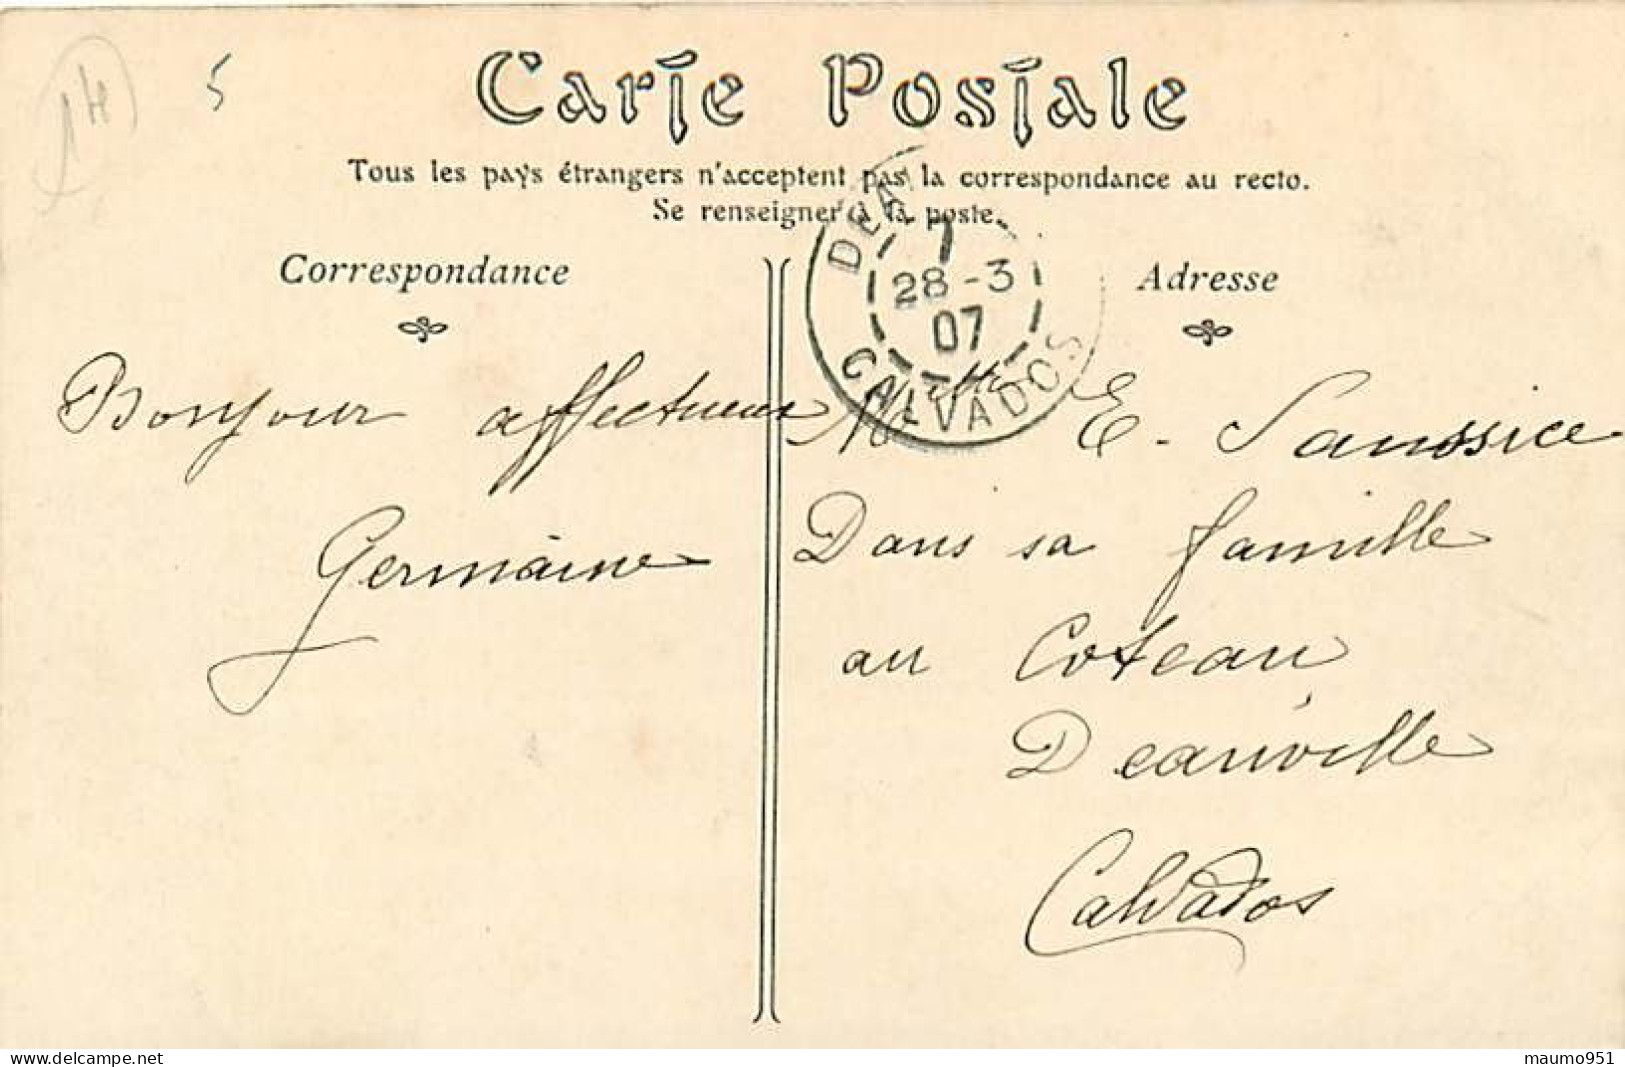 14
5
Carte Postale
Tous les pays étrangers n'acceptent pas la correspondance au recto.
Se renseigner à la poste.
Correspondance
Adresse
DEA
7
28-3
07
CALVADOS
Bonjour affectueux
Germaine
Melle E. Saussice
Dans sa famille
au Coteau
Deauville
Calvados
www.delcampe.net
maumo951